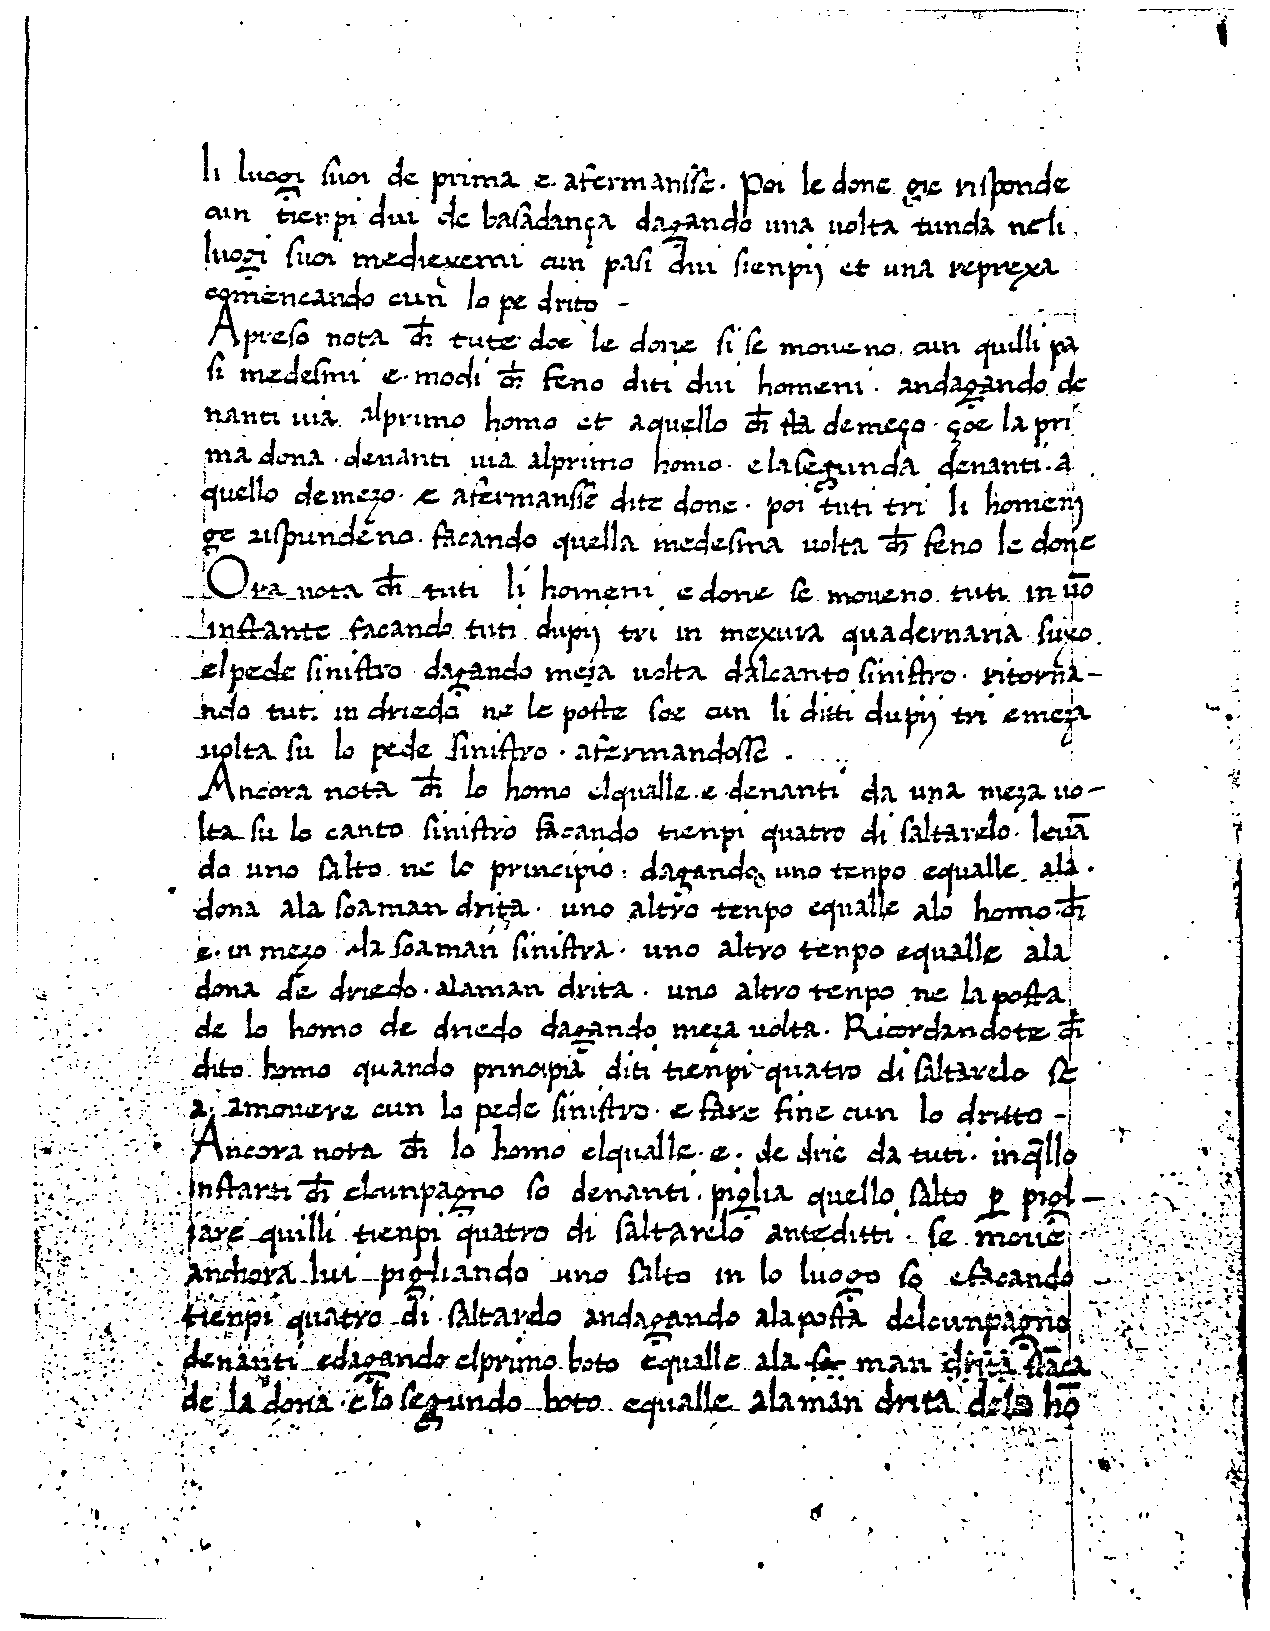 li luogi suoi de prima e. afermansse. Poi le done ge risponde
cun tienpi dui de basadança dagando una uolta tunda neli
luogi suoi mediexemi cun pasi dui sienpij et una reprexa
comencando cun lo pe drito -
Apreso nota ch̄ tute doe le done si se moueno cun quilli pa
si medesimi e. modi ch̄ feno diti dui homeni. andagando de
nanti uia alprimo homo et aquello ch̄ sta demeço. çoe la pri
ma dona. denanti uia alprimo homo. e la segunda denanti. a
quello demezo. e afermansse dite done. poi tuti tri li homenj
ge rispundeno. facando quella medesima uolta ch̄ feno le done
Ora nota ch̄ tuti li homeni e done se moueno tuti in uō
instante facando tuti dupij tri in mexura quadernaria suxo
elpede sinistro dagando meza uolta dalcanto sinistro. ritorna-
ndo tuti in driedo ne le poste soe cun li ditti dupij tri e meza
uolta su lo pede sinistro. afermandosse.
Ancora nota ch̄ lo homo elqualle. e. denanti da una meza uo-
lta su lo canto sinistro facando tienpi quatro di saltarelo. leuā
do uno salto ne lo principio. dagando uno tenpo equalle ala.
dona ala soa man drita. uno altro tenpo equalle alo homo ch̄
e. in mezo ala soa man sinistra. uno altro tenpo equalle ala
dona de driedo. ala man drita. uno altro tenpo ne la posta
de lo homo de driedo dagando meza uolta. Ricordandote ch̄
dito homo quando principia diti tienpi quatro di saltarelo se
a. amouere cun lo pede sinistro. e fare fine cun lo dritto -
Ancora nota ch̄ lo homo elqualle. e. de drie da tuti. in q̄llo
instanti ch̄ elcunpagno so denanti. piglia quello salto p̱ pigl-
iare quilli tienpi quatro di saltarelo anteditti. se moue
anchora lui pigliando uno salto in lo luogo so e facando
tienpi quatro di saltarelo andagando ala posta delcunpagno
denanti e dagando elprimo boto equalle ala man drita
de la dona. e lo segundo boto equalle ala man drita delo hō